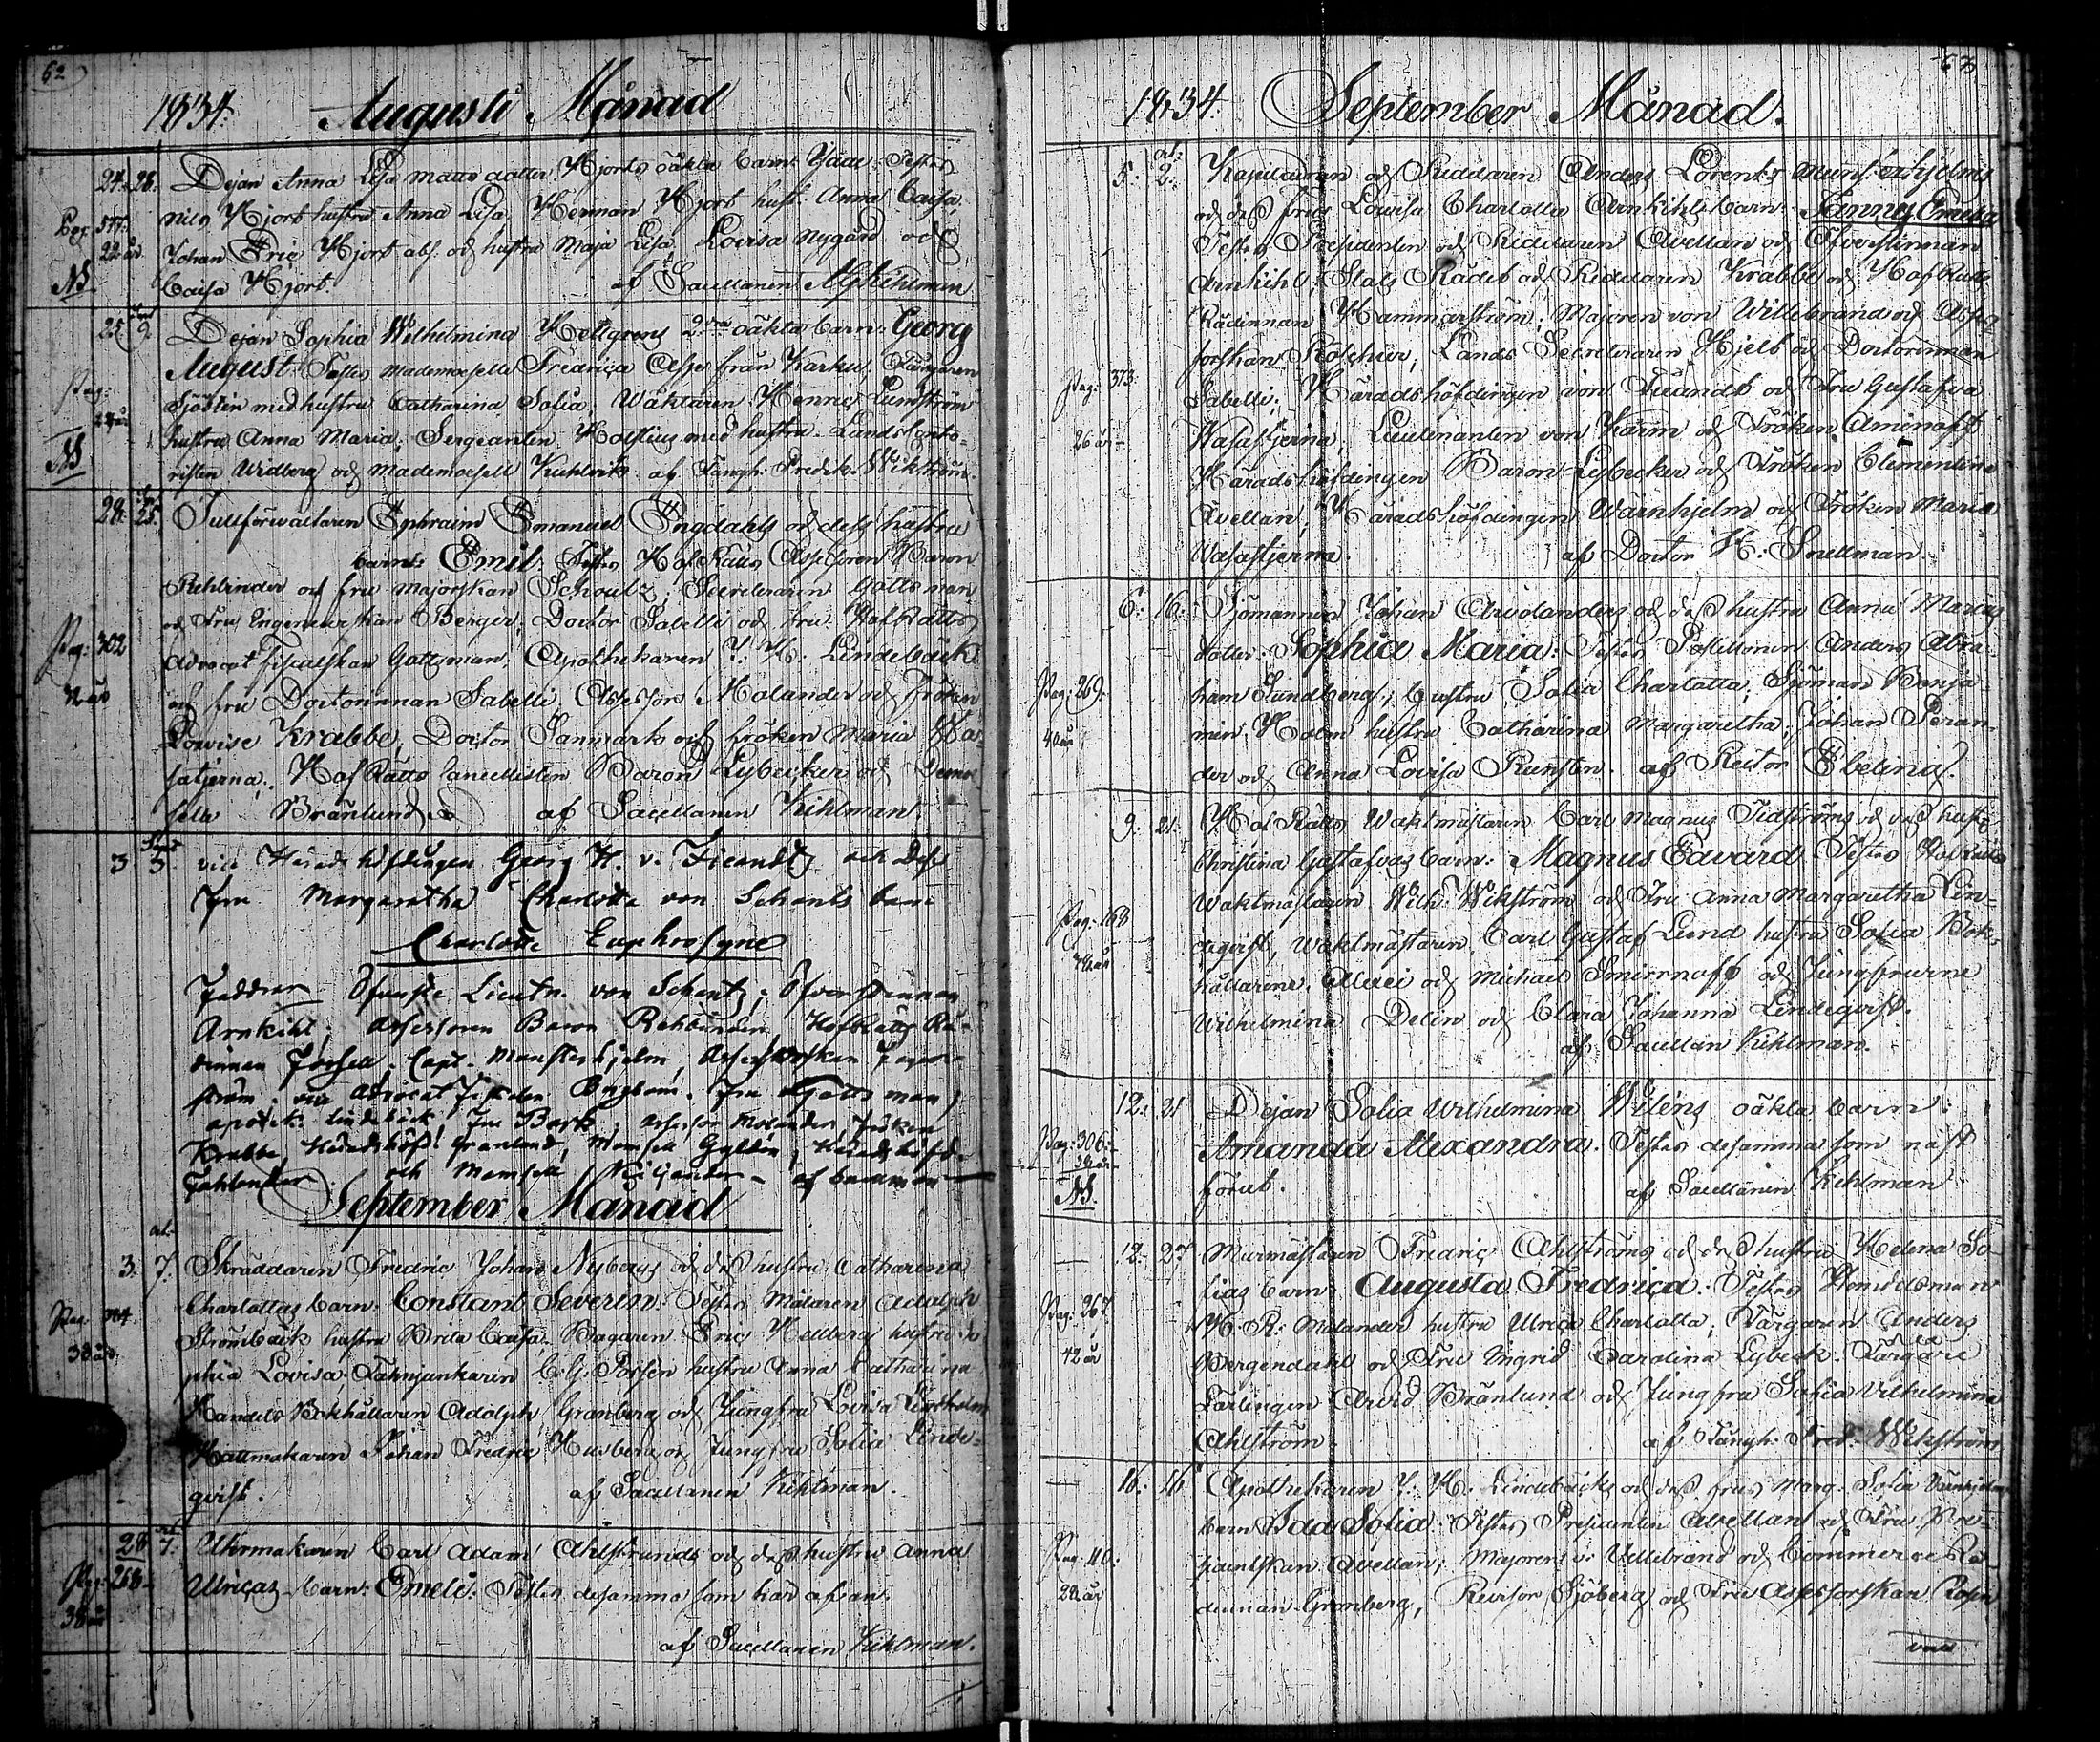 62
1834. Augusti Månad
24. 28. Pigan Anna Lisa Matts dotter Hjorts oäkta barn: Isaac: Testes
Pag: 577. Nils Hjort hustru Anna Lisa, Herman Hjort hust: Anna Caisa,
22 år Johan Eric Hjort abs. och hustru Maja Lisa Lovisa Nygård och
NB. Caisa Hjort. af Sacellanen Kihlman
25. 9. Pigan Sophia Wilhelmina Hellgrens 2dra oäkta barn: Georg
August: Testes Mademoiselle Fredrica från Karku;
Pag: Sjöstén med hustru Catharina Sofia, Waktaren Henric Lundström
hustru Anna Maria; Sergeanten med hustru Lands Conto-
NB risten Widberg och Mademoisell af Fångh: Predik: Wikström.
28. 25. Tullförvaltaren Ephraim Emanuel Engdahls och dess hustru
barn: Emil. Testes Hof Rätts Assessoren Baron
Rehbinder och fru Majorskan Schoultz, Secreteraren Gottsman
och Fru Ingenieurskan Berger, Doctor Sabelli och fru Hof Rätts
Pag: 302 Advocat Fiscalskan Gottsman, Apothekaren J. H. Lindebäck
och fru Doctorinnan Sabelli, Assessor Molander och Fröken
Lovise Krabbe, Doctor Sanmark och fröken Maria Wa-
sastjerna; Hof Rätts Cancellisten Baron Lybecker och Demoi
selle Brånlund af Sacellanen Kihlman.
3 Sept 5. vice Häradshöfdingen Georg H. v. Fieandts och dess
Fru Margaretha Charlotte von Schants barn
Charlotte Euphrosyne
Faddrar Öfverste Lieutn. von Schantz; Öfverstinnan
Arnkihl; Assessoren Baron Rehbinder, Hofrätts Rå-
dinnan Forsell, Capt. Munsterhjelm, Assessorskan
ström; vice Advocat Fiskalen Fru Gottsman,
apotek. Lindebäck, Fru Bark; Assessor Molander, Fröken
Krabbe, Häradshöfd. Granlund, Mamsell Gyldén, Häradshöfd.
Fahlander och Mamsell af
September Månad
3. 7. Skräddaren Fredric Johan Nybergs och dess hustru Catharina
Charlottas barn: Constant Severin: Testes Målaren Adolph
Pag: 304 Strömbäck hustru Brita Caisa, Bagaren Eric Hellberg hustru So
38 år phia Lovisa, Fahnjunkaren C. G. Forsén hustru Anna Catharina
Handels Bokhållaren Adolph Granberg och Jungfru Lovisa Lindholm
Hattmakaren Johan Fredric Husberg och Jungfru Sofia Linde-
qvist. af Sacellanen Kihlman.
28 7. Uhrmakaren Carl Adam Ahlstrands och dess hustru Anna
Pag: 268 Ulricas barn: Emele: Testes desamma som här ofvan.
38 år af Sacellanen Kihlman.
63
1834. September Månad.
5. 2. Kapitainen och Riddaren Anders Lorents Munsterhjelms
och dess frus Lovisa Charlotta Arnkihls barn: Fanny Emelie
Testes Presidenten och Riddaren Avellan och Öfverstinnan
Arnkihl, Stats Rådet och Riddaren Krabbe och Hof Rätts
Rådinnan Hammarström, Majoren von Willebrand och Asses
Pag: 373 sorskan Rotchier, Lands Secreteraren Hjelt och Doctorinnan
Sabelli; Häradshöfdingen von Fieandt och Fru Gustafva
26 år Wasastjerna, Lieutenanten von Karm och Fröken Aminoff
Häradshöfdingen Baron Lybecker och Fröken Clementine
Avellan; Häradshöfdingen Wärnhjelm och Fröken Maria
Wasastjerna. af Doctor H. Snellman.
6. 16. Sjömannen Johan Arvolanders och dess hustru Anna Marias
dotter Sophia Maria: Testes Anders Abra-
Pag: 269. ham Sundberg; hustru Sofia Charlotta, Sjöman Benja-
40 år min Holm hustru Catharina Margaretha; Johan Peran-
der och Anna Lovisa Runsten. af Rector Ebeling.
9. 21. Hof Rätts Waktmästaren Carl Magnus Tidströms och dess hust:
Christina Gustafvas barn: Magnus Edvard Testes Hof Rätts
Waktmästaren Wilh: Wikström och Fru Anna Margaretha Lin-
Pag: 168 deqvist, Waktmästaren Carl Gustaf Lund hustru Sofia Bok-
hållarene Alexei och Michael Smirnoff och Jungfrurne
Wilhelmina Delin och Clara Johanna Lindeqvist.
af Sacellan Kihlman.
12. 21 Pigan Sofia Wilhelmina Viléns oäkta barn:
Pag: 306. Amanda Alexandra. Testes desamma som näst
NB. förut. af Sacellanen Kihlman
12. 27 Murmästaren Fredric Ahlströms och dess hustru Helena So-
fias barn: Augusta Fredrica: Testes Nämndeman
Pag: 267. H. R. Malander hustru Ulrica Charlotta, Färgaren Anders
42 år Bergendahl och Fru Ingrid Carolina Lybeck. Färgare
Lärlingen Arvid Brånlund och Jungfru Sofia Vilhelmina
Ahlström. af Fångh: Pred: Wikström
16. 16 Apothekaren J. H. Lindebäcks och dess frus Marg. Sofia Värnhjelms
barn Ida Sofia: Testes Presidenten Avellan och Fru Pre-
Pag: 40: sidentskan Avellan; Majoren v. Villebrand och Commerce Rå-
28 år dinnan Grönberg, Revisor Sjöberg och Fru Assessorskan Rosen